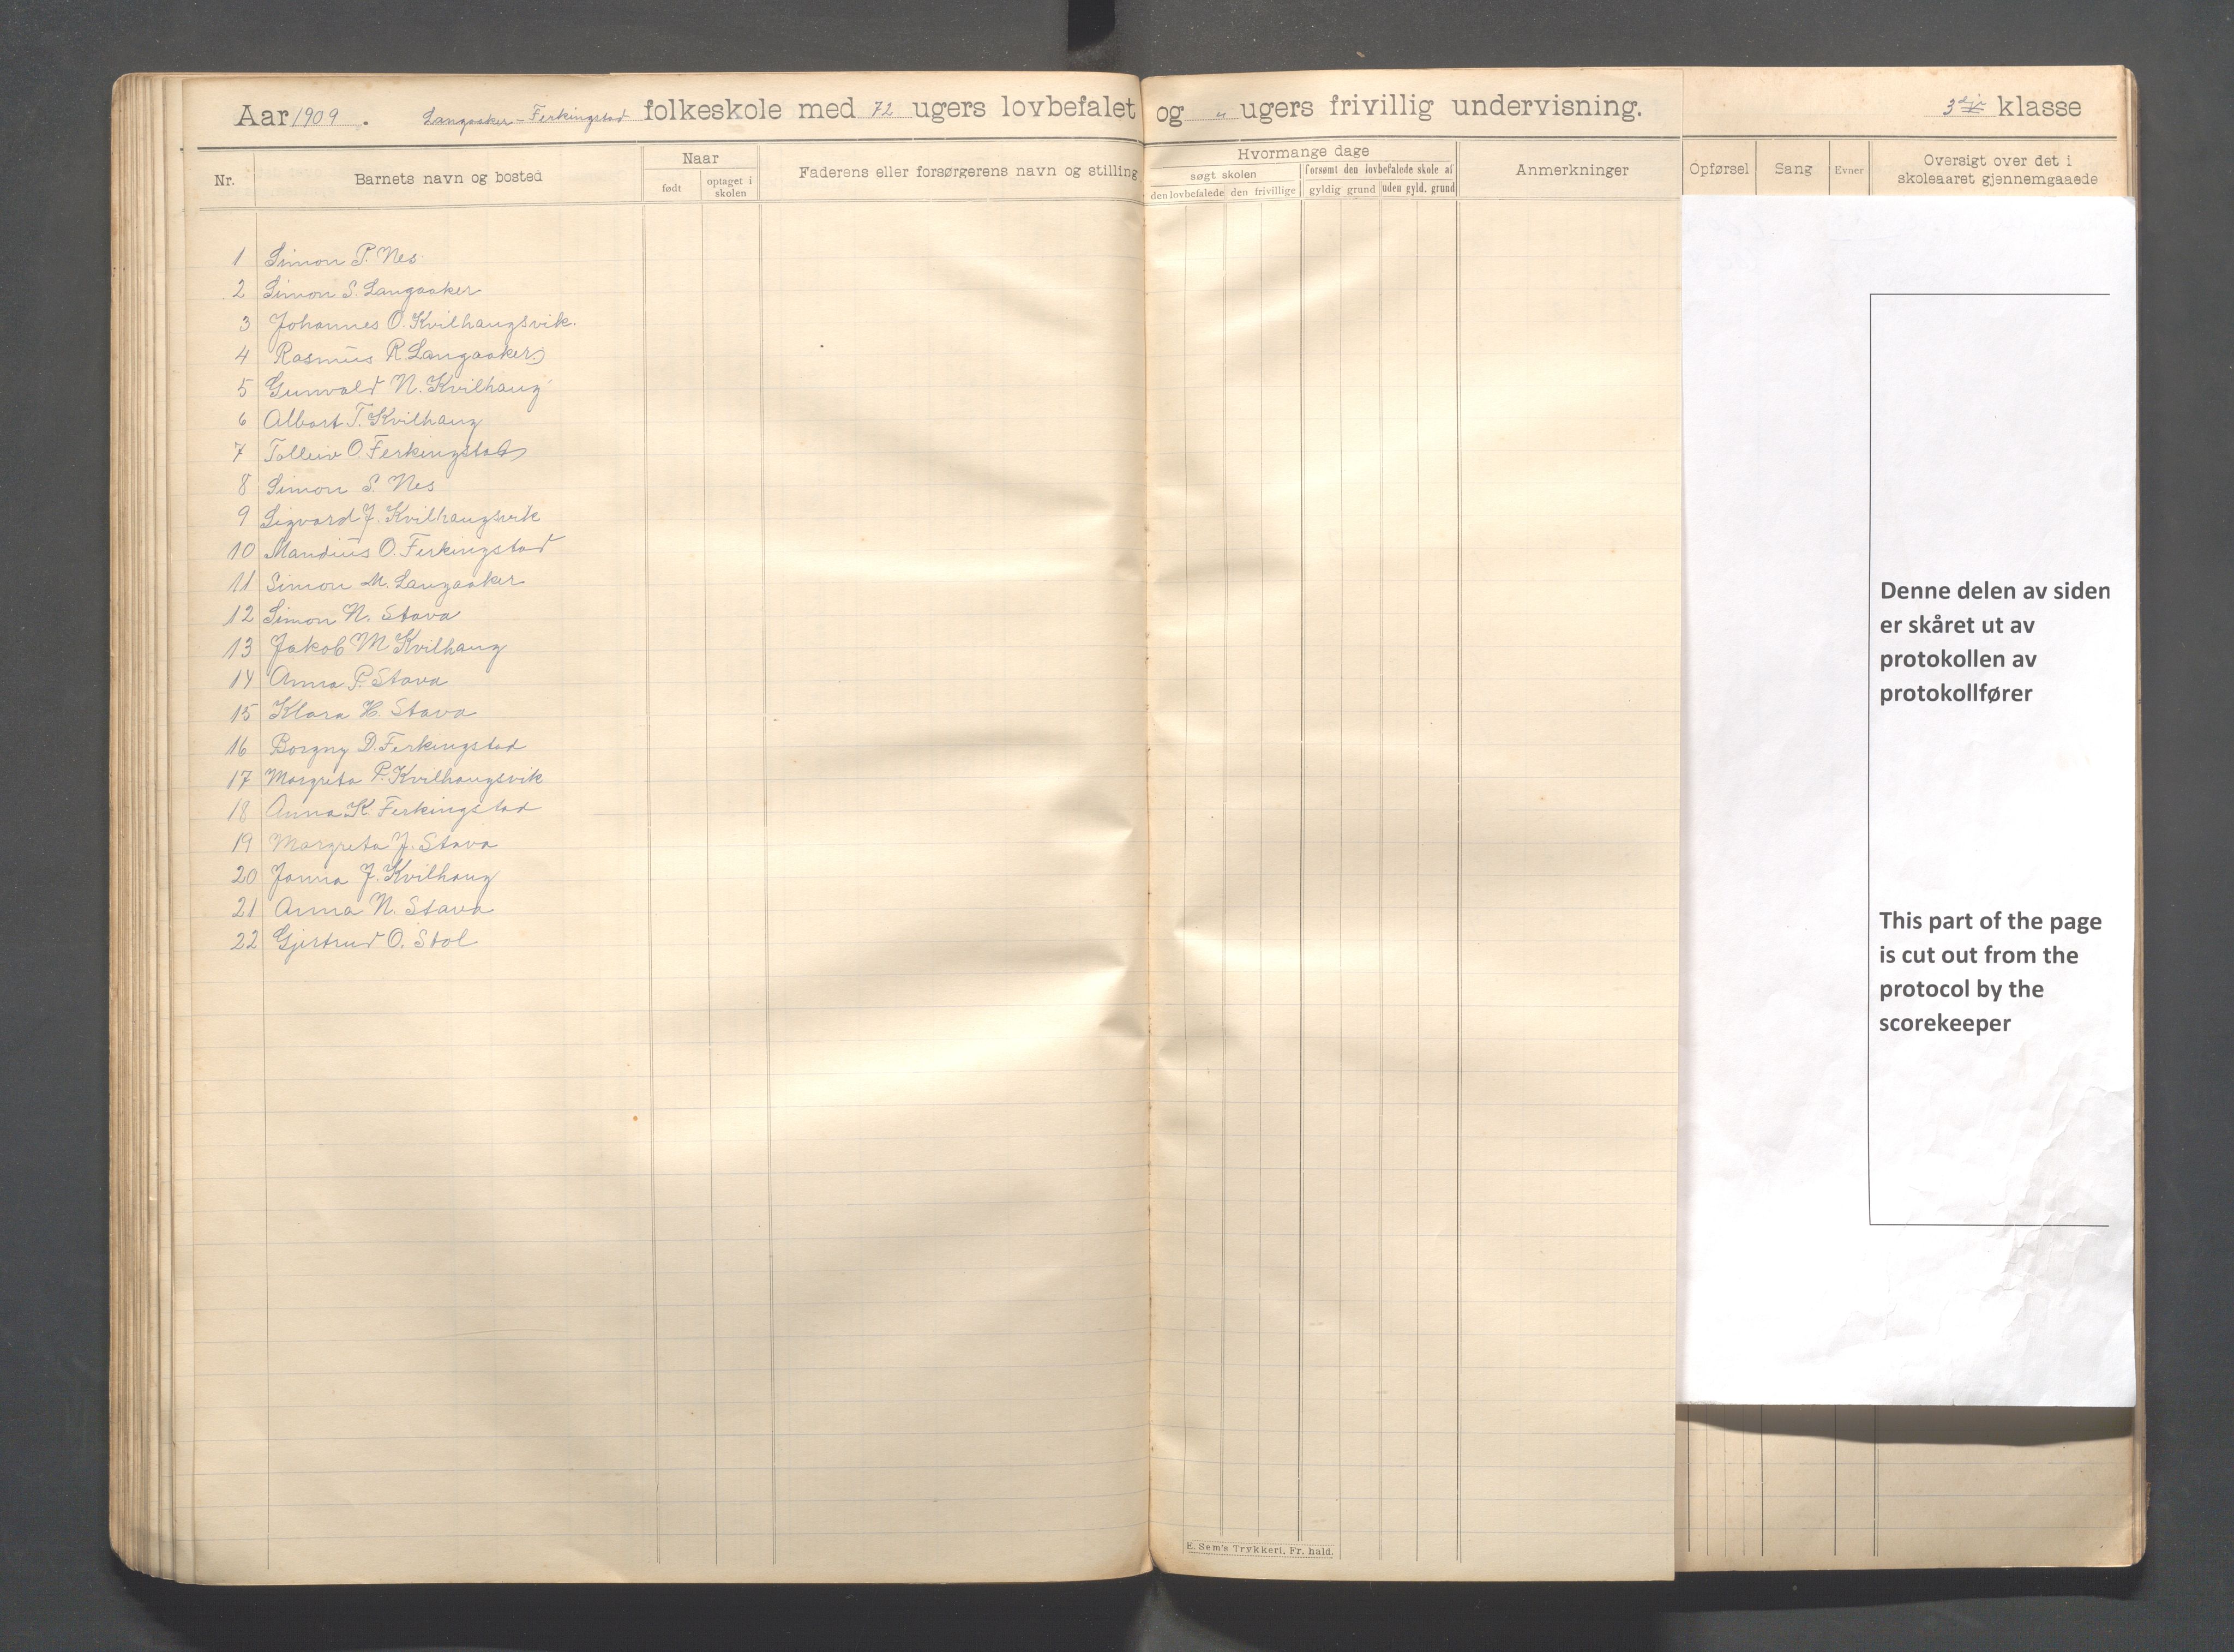 Aar 1909. Langaaker-Ferkingstad folkeskole med 72 ugers lovbefalet og " ugers frivillig undervisning. 3dje klasse
Nr.
Barnets navn og bosted
Naar
født
optaget i skolen
Faderens eller forsørgerens navn og stilling
Hvormange dage
søgt skolen
forsømt den lovbefalede skole af
den lovbefalede
den frivillige
gyldig grund
uden gyld. grund
Anmerkninger
Opførsel
Sang
Evner
Oversigt over det i
skoleaaret gjennemgaaede
1 Simon P. Nes
2 Simon S. Langaaker
3 Johannes O. Kvilhaugsvik.
4 Rasmus R. Langaaker
5 Gunvald N. Kvilhaug
6 Albert T. Kvilhaug
7 Tolleiv O. Ferkingstad
8 Simon S. Nes
9 Sigvard J. Kvilhaugsvik
10 Mandius O. Ferkingstad
11 Simon M. Langaaker
12 Simon N. Stava
13 Jakob M Kvilhaug
14 Anna P. Stava
15 Klara H. Stava
16 Borgny D. Ferkingstad
17 Margreta P. Kvilhaugsvik
18 Anna K. Ferkingstad
19 Margreta J. Stava
20 Janna J. Kvilhaug
21 Anna N. Stava
22 Gjertrud O. Stol
Denne delen av siden
er skåret ut av
protokollen av
protokollfører
This part of the page
is cut out from the
protocol by the
scorekeeper
E. Sem's Trykkeri, Fr. hald.